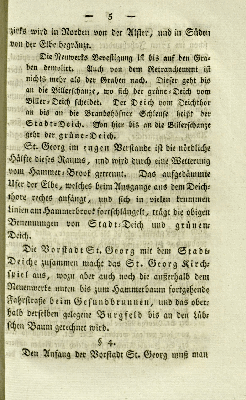 — 5 —
zirks wird in Norden von der Alster, und in Süden
von der Elbe begränzt.
Die Neuwerks Bevestigung ist bis auf den Gra-
ben demolirt. Auch von dem Retranchement ist
nichts mehr als der Graben nach. Dieser geht bis
an die Billerschanze, wo sich der grüne-Deich vom
Biller-Deich scheidet. Der Deich vom Deichthor
an bis an die Brandshöfner Schleuse heißt der
Stadt-Deich. Von hier bis an die Billerschanze
geht der grüne-Deich.
St. Georg im engen Verstande ist die nördliche
Hälfte dieses Raums, und wird durch eine Wetterung
vom Hammer-Brook getrennt. Das aufgedämmte
Ufer der Elbe, welches beim Ausgange aus dem Deich-
thore rechts anfängt, und sich in vielen krummen
Linien am Hammerbrook fortschlängelt, trägt die obigen
Benennungen von Stadt-Deich und grünen-
Deich.
Die Vorstadt St. Georg mit dem Stadt-
Deiche zusammen macht das St. Georg Kirch-
spiel aus, wozu aber auch noch die außerhalb dem
Neuenwerke unten bis zum Hammerbaum fortgehende
Fahrstraße beim Gesundbrunnen, und das ober-
halb derselben gelegene Burgfeld bis an den Lüb-
schen Baum gerechnet wird.
§ 4.
Den Anfang der Vorstadt St. Georg muß man